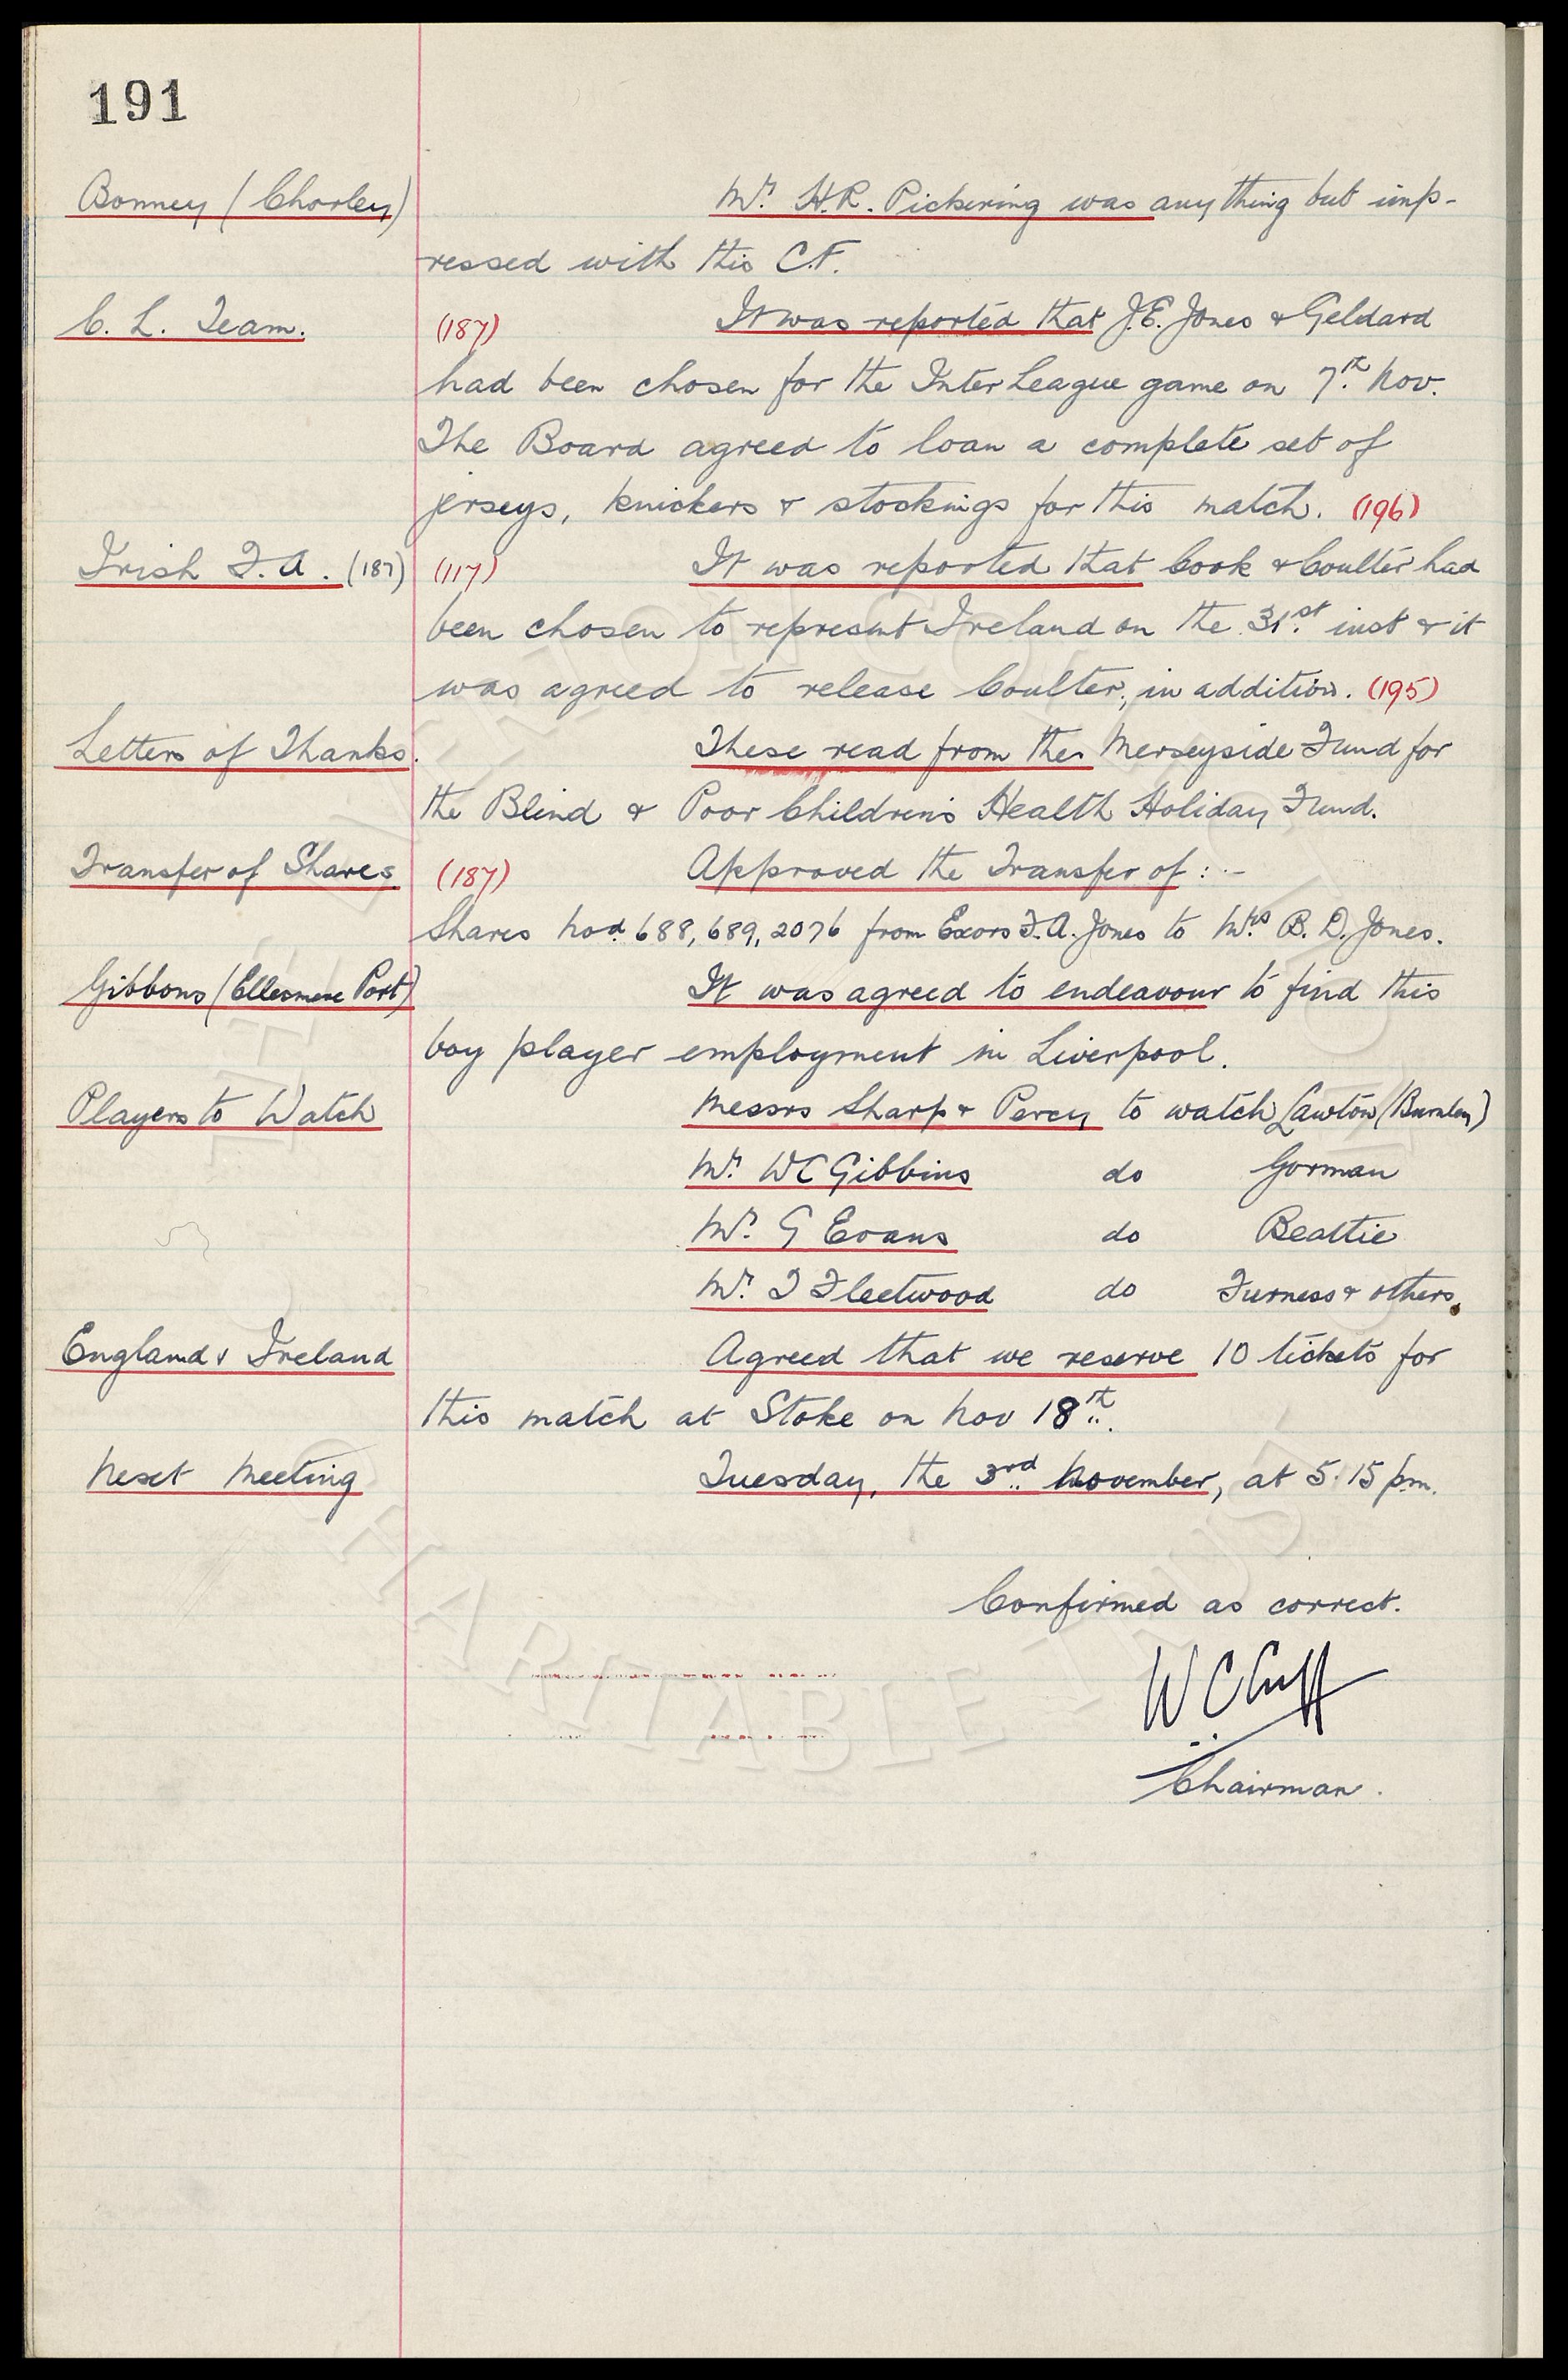 191
Bonney (Chorley) Mr. H.R. Pickering was anything but imp-
ressed with this C.F.
C. L. Team. (187) It was reported that J.E. Jones & Geldard
had been chosen for the Inter League game on 7th. Nov.
The Board agreed to loan a complete set of
jerseys, knickers & stockings for this match. (196)
Irish F.A. (187) (117) It was reported that Cook & Coulter had
been chosen to represent Ireland on the 31st. inst & it
was agreed to release Coulter, in addition. (195)
Letters of Thanks. These read from the Merseyside Fund for
the Blind & Poor Children's Health Holiday Fund.
Transfer of Shares (187) Approved the Transfer of :-
Shares nos. 688, 689, 2076 from Exors F.A. Jones to Mrs B. D. Jones.
Gibbons (Ellesmere Port) It was agreed to endeavour to find this
boy player employment in Liverpool.
Players to Watch Messrs Sharp & Percy to watch Lawton (Burnley)
Mr. WC Gibbins do Gorman
Mr. G Evans do Beattie
Mr. T Fleetwood do Furness & others.
England v Ireland Agreed that we reserve 10 tickets for
this match at Stoke on Nov 18th.
Next Meeting Tuesday, the 3rd. November, at 5.15 p.m.
Confirmed as correct.
W C Cuff
Chairman.
CHARITABLE TRUST